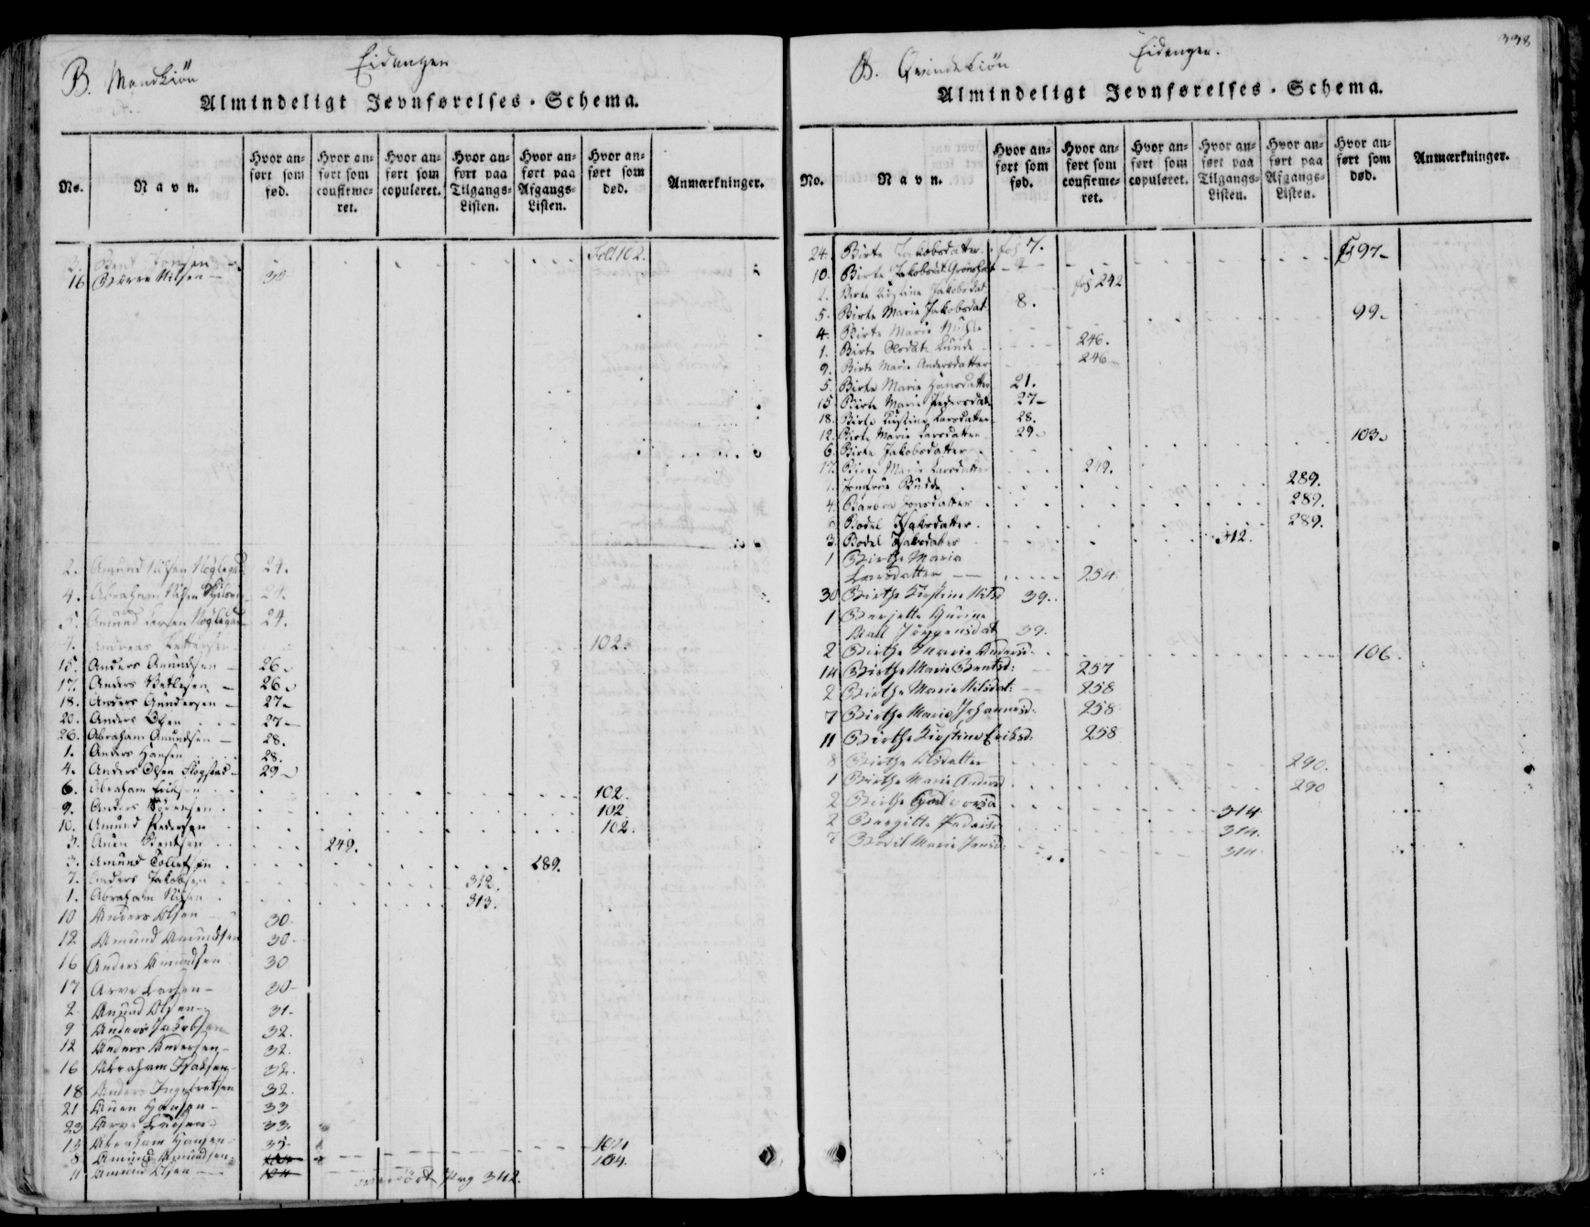 B. Mandkiøn
Eidanger
Almindeligt Jevnførelses-Schema.
No.
Navn.
Hvor anført som fød.
Hvor anført som confirmeret.
Hvor anført som copuleret.
Hvor anført paa Tilgangs-Listen.
Hvor anført paa Afgangs-Listen.
Hvor anført som død.
Anmærkninger.
Foll 102.
16 Børre Nilsen 30
2. Amund 24.
4. Abraham 24.
5. Amund 24.
4. Andreas 102.
15. Anders Amundsen 26.
17. Anders 26.
18. Anders Gundersen 27
20. Anders Olsen 27
26. Abraham Amundsen 28.
1. Anders Hansen 28.
4. Anders Olsen 29
6. Abraham Eriksen 102.
9. Anders Sørensen 102.
10. Amund Pedersen 102.
3. Auen Bentsen 249.
3. Amund 289.
7. Anders Jakobsen 312.
1. Abraham Nilsen 313.
10 Anders Olsen 30.
12 Amund Amundsen 30.
16 Anders Amundsen 30
17 Arve Larsen 30
2 Amund Olsen 31.
9 Anders Jakobsen 32.
12 Anders Andersen 32.
16 Abraham Isaksen 32.
18 Anders Ingebretsen 32.
21 Auen Hansen 33
23 Arve Larsen 33.
13 Abraham Hansen 35 104
8 Amund Amundsen 104.
11 Amund Olsen
overført Pag 342.
338
B. Qvindekiøn
Eidanger.
Almindeligt Jevnførelses-Schema.
No.
Navn.
Hvor anført som fød.
Hvor anført som confirmeret.
Hvor anført som copuleret.
Hvor anført paa Tilgangs-Listen.
Hvor anført paa Afgangs-Listen.
Hvor anført som død.
Anmærkninger.
24. Birte Jakobsdatter. fol 7. 97
10. Birte Jakobsdat
2. Birte Kirstine Jakobsdat fol 242
5. Birte Marie Jakobsdat 8. 99
4. Birte Marie 246.
1. Birte Olsdat. Lunde 246
9. Birte Marie Andersdatter
5. Birte Marie Hansdatter 21.
15. Birte Marie Pedersdat 27
18. Birte Kirstine Larsdatter 28.
12. Birte Marie Larsdatter 29 103.
6. Birte Jakobsdatter
17. Birte Marie Larsdatter 249.
Budde 289.
4. Barbra Jonsdatter 289.
Bodel Isaksdatter 289.
3. Bodel Isaksdatter 312.
1 Birthe Maria
Larsdatter 254
30 Birthe Kirstine Nilsd 39.
1 Berjette Gurine
Mall Jørgensdat 39.
2 Birthe Marie Andersd. 106.
14 Birthe Marie Bentsd: 257
2 Birthe Marie Nilsdat: 258
7 Birthe Marie Johannesd. 258
11 Birthe Kirstine Eriksd. 258
8 Birthe Olsdatter 290.
1 Birthe Marie Andersd 290
2 Birthe 314
2 Bergitte 314.
7 Bodil Marie Jensd: 314